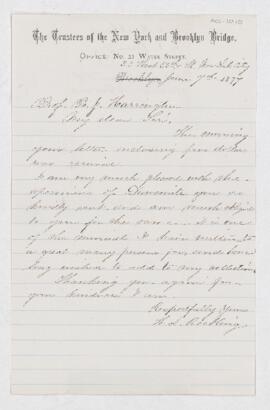 The Trustees of the New York and Brooklyn Bridge,
Office No. 21 Water Street.
Brooklyn, June 7th 1877
Prof. B. J. Harrington
My dear Sir,
This morning
your letter inclosing five dollars
was received
I am very much pleased with the
specimen of Chromite you so
kindly sent and am much obliged
to you for the same. It is one
of the minerals I have written to
a great many persons for and
long wished to add to my collection.
Thanking you again for
your kindness I am
Respectfully Yours
W. A. Roebling